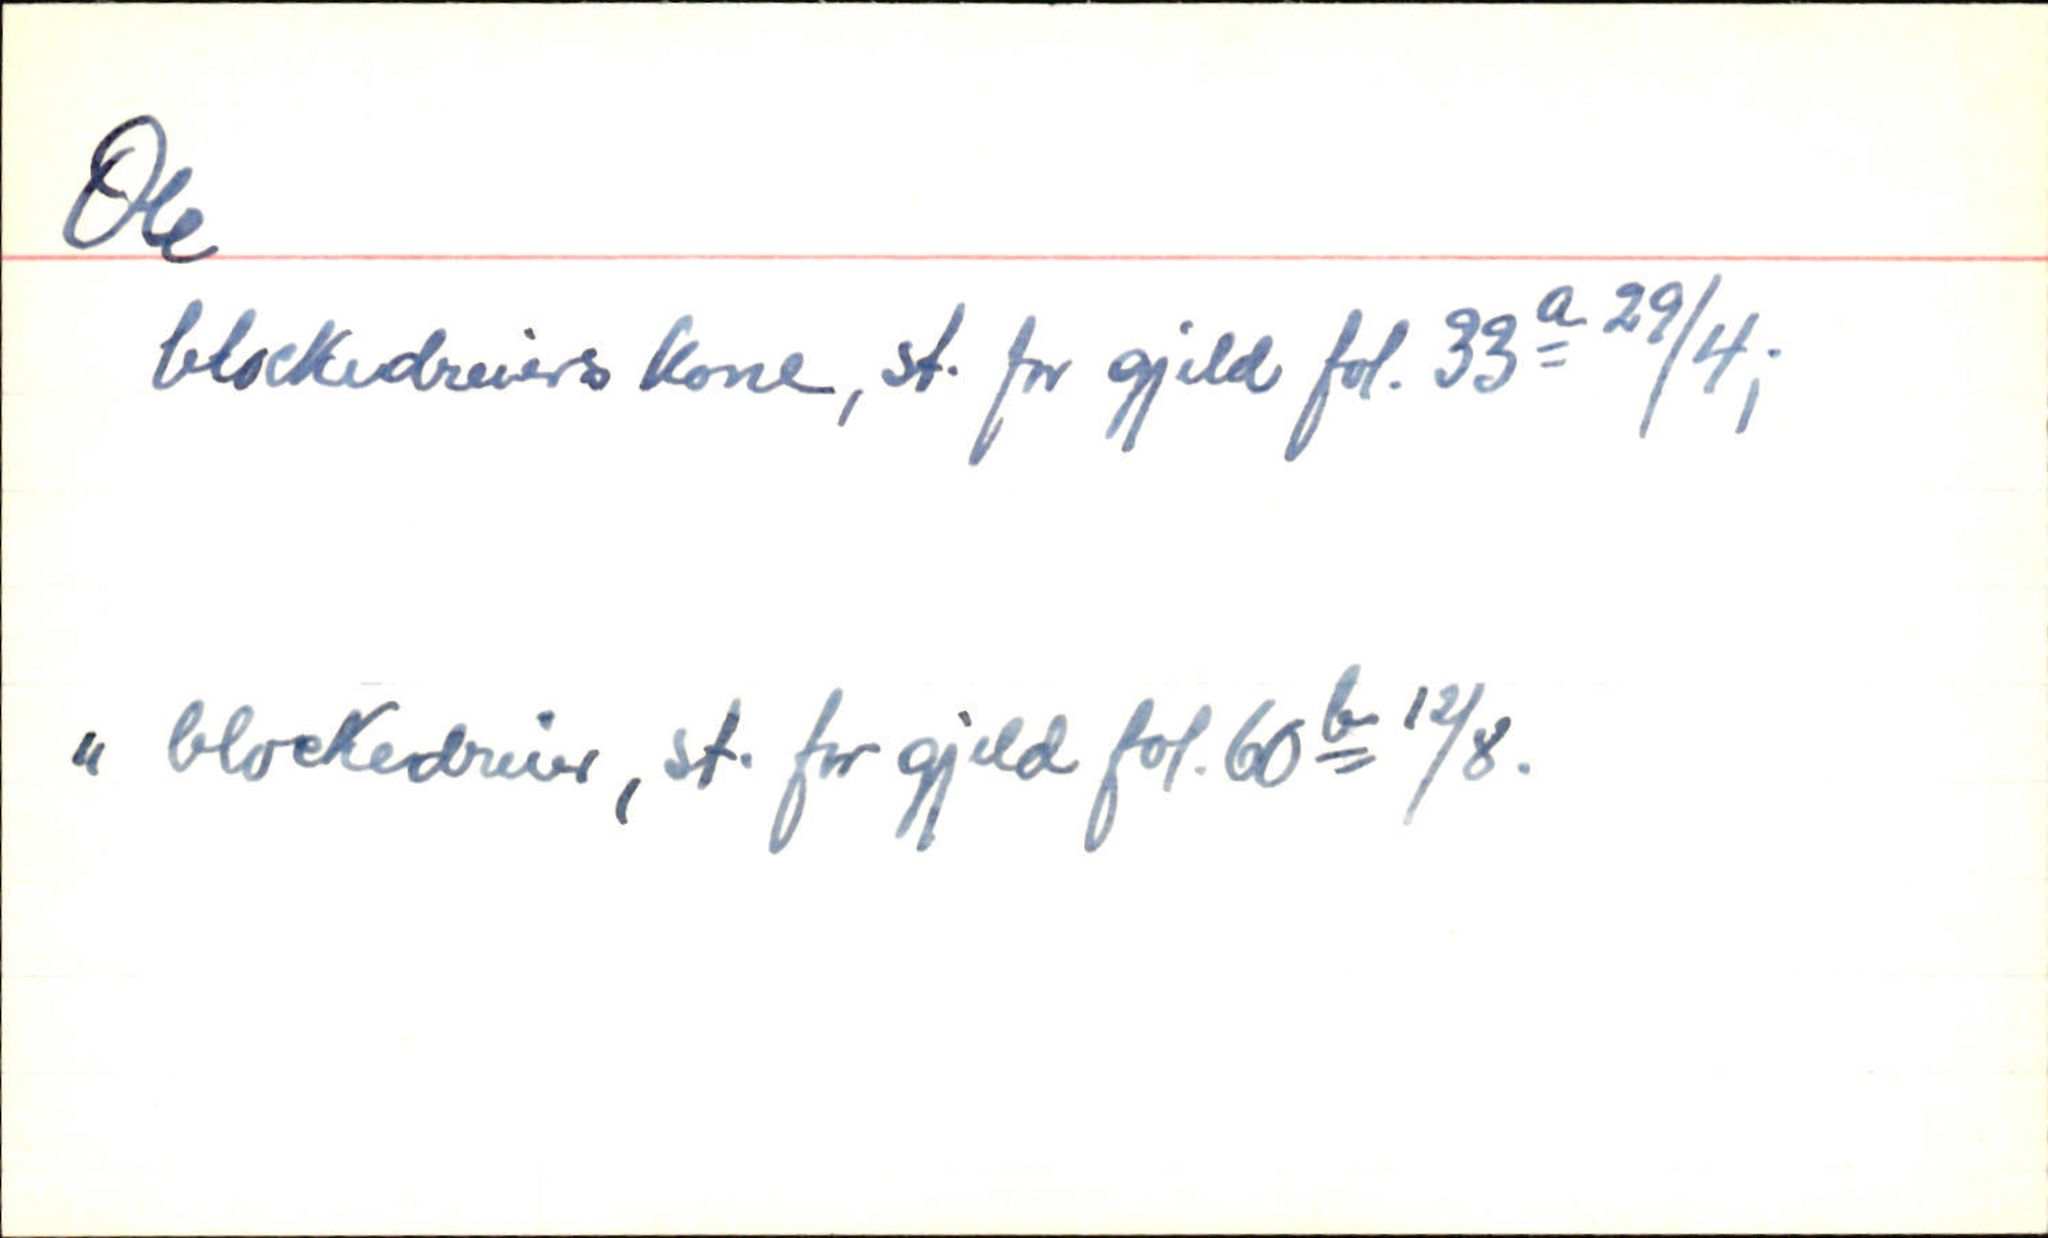 Ole
blockedreiers kone, st. for gjeld fol. 33a 29/4;
" blockedreier, st. for gjeld fol. 60b 12/8.